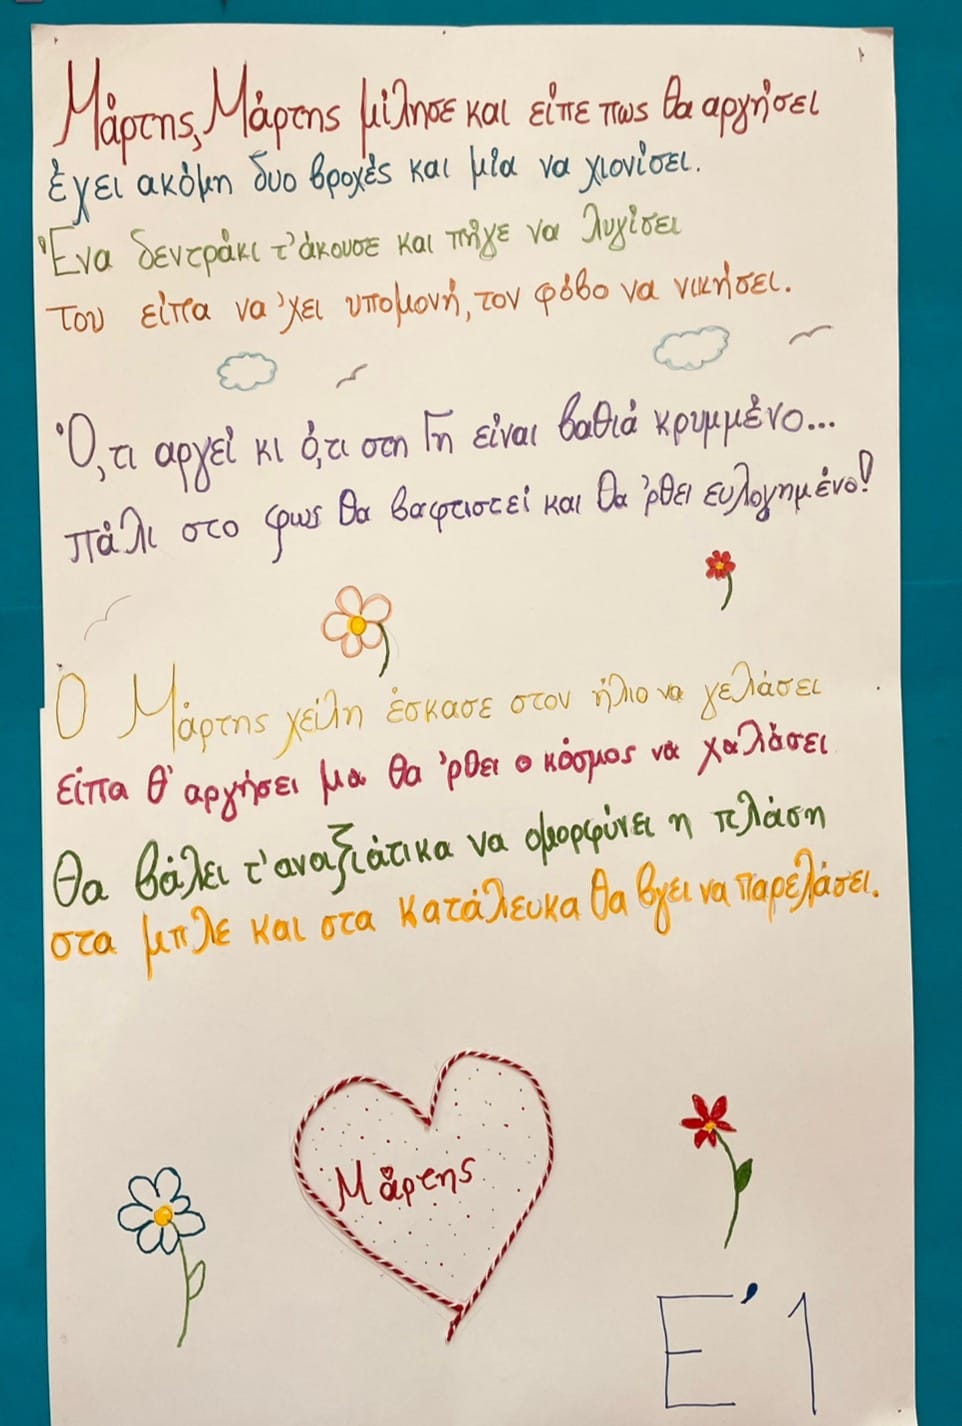 Μάρτης, Μάρτης μίλησε και είπε πως θα αργήσει
έχει ακόμη δυο βροχές και μία να χιονίσει.
Ένα δεντράκι τ'άκουσε και πήγε να λυγίσει
του είπα να 'χει υπομονή, τον φόβο να νικήσει.
Ό,τι αργεί κι ό,τι στη Γη είναι βαθιά κρυμμένο...
πάλι στο φως θα βαφτιστεί και θα 'ρθει ευλογημένο!
Ο Μάρτης χείλη έσκασε στον ήλιο να γελάσει
είπα θ' αργήσει μα θα 'ρθει ο κόσμος να χαλάσει
Θα βάλει τ'αναξιάτικα να ομορφύνει η πλάση
στα μπλε και στα κατάλευκα θα βγει να παρελάσει.
Μάρτης
Ε'1